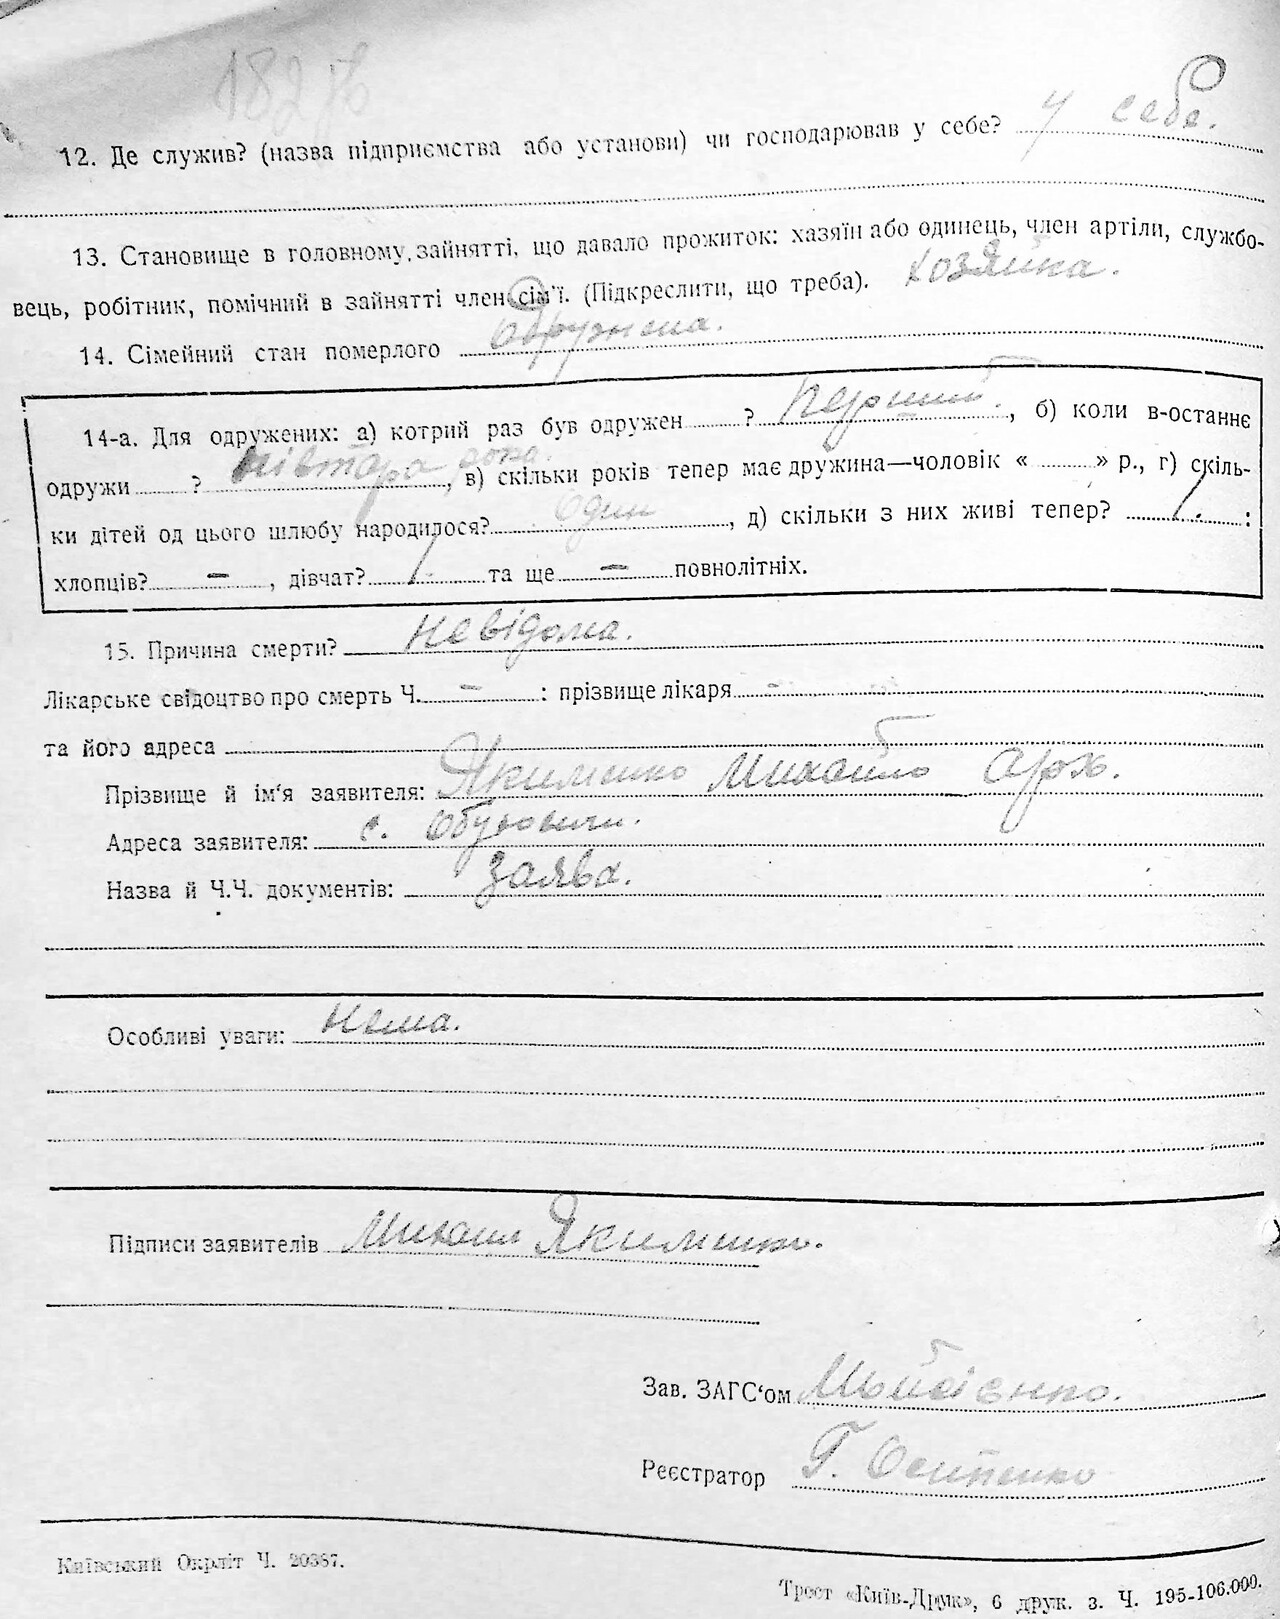 182
12. Де служив? (назва підприємства або установи) чи господарював у себе? У себе.
13. Становище в головному зайнятті, що давало прожиток: хазяїн або одинець, член артіли, службо-
вець, робітник, помічний в зайнятті член сім'ї. (Підкреслити, що треба). хозяйка.
14. Сімейний стан померлого одружена.
14-а. Для одружених: а) котрий раз був одружен ? Перший. , б) коли в-останнє
одружи ? Півтора року. , в) скільки років тепер має дружина—чоловік « » р., г) скіль-
ки дітей од цього шлюбу народилося? Один , д) скільки з них живі тепер? 1. :
хлопців? — , дівчат? 1. та ще — повнолітніх.
15. Причина смерти? Невідома.
Лікарське свідоцтво про смерть Ч. — : прізвище лікаря -
та його адреса
Прізвище й ім'я заявителя: Якименко Михайло Арх.
Адреса заявителя: с. Обуховичи.
Назва й Ч.Ч. документів: Заява.
Особливі уваги: Нема.
Підписи заявителів Михаил Якименко.
Зав. ЗАГС'ом
Реєстратор Г. Осипенко
Київський Окрліт Ч. 20387.
Трест «Київ-Друк», 6 друк. з. Ч. 195-106.000.